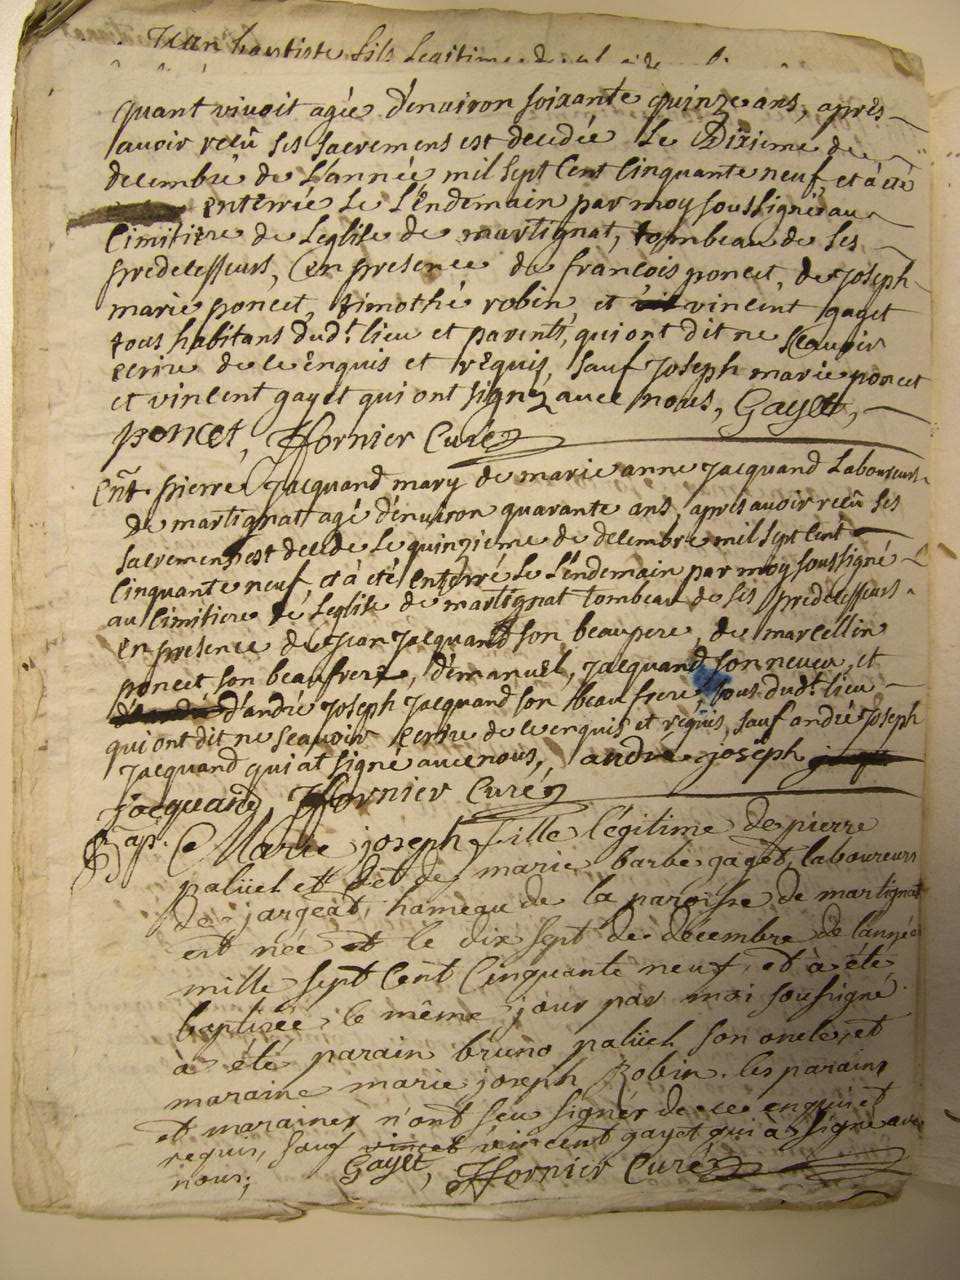 Jean baptiste fils legitime
quant vivoit agée d'environ soixante quinze ans, après
avoir reçû ses sacremens est decedée le Dixieme de
decembre de L'année mil sept cent cinquante neuf, et à été
enterrée le L'endemain par moy soussigné au
cimitiere de L'eglise de martignat, tombeau de ses
predecesseurs, en presence de françois poncet, de joseph
marie poncet, timothé robin, et vincent gayet
tous habitans dud.t lieu et parents, qui ont dit ne sçavoir
ecrire de ce enquis et requis, sauf joseph marie poncet
et vincent gayet qui ont signé avec nous, Gayet,
poncet, ffornier Curé
Ent. pierre Jacquand mary de marie anne jacquand Laboureurs
de martignat agé d'environ quarante ans, après avoir reçû ses
sacremens est decedé le quinzieme de decembre mil sept cent
cinquante neuf, et à été enterré le L'endemain par moy soussigné
au cimitiere de L'eglise de martignat tombeau de ses predecesseurs
en presence de jean jacquand son beaupere, de marcellin
poncet son beaufrere, d'emanuël, jacquand son neveu, et
d'andré joseph jacquand son beaufrere, tous dud.t lieu
qui ont dit ne sçavoir ecrire de ce enquis et requis, sauf andré joseph
jacquand qui at signé avec nous, andre joseph
jacquand, ffornier Curé
Bap. Ce Marie joseph fille légitime de pierre
palüel et de marie barbe gayet, laboureurs
de jargeat, hameau de la paroisse de martignat
est née le dix sept de decembre de l'année
mille sept cent cinquante neuf, et à été
baptisée le même jour par moi soussigné
à été parain bruno palüel son oncle, et
maraine marie joseph Robin. les parains
et maraines n'ont sçu signer de ce enquis et
requis, sauf vincent gayet qui à signé avec
nous; Gayet, ffornier Curé